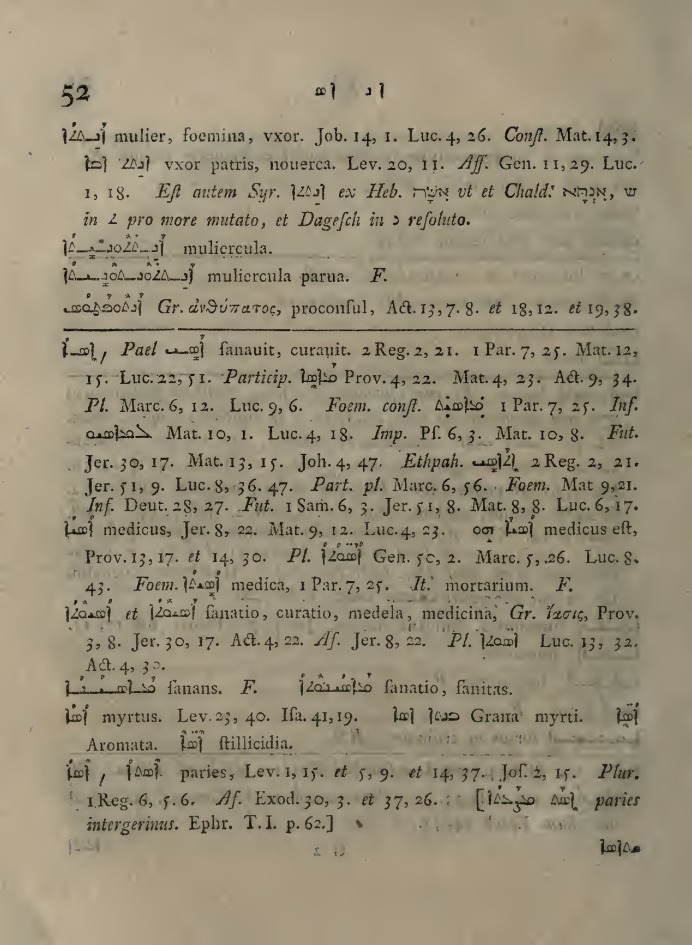 52 ܐܢ ܐܣ
ܐܢܬܬܐ mulier, foemina, vxor. Job. 14, 1. Luc. 4, 26. Conſt. Mat. 14, 3.
ܐܢܬܬ ܐܒܐ vxor patris, nouerca. Lev. 20, 11. Aff. Gen. 11, 29. Luc.
1, 18. Eſt autem Syr. ܐܢܬܬܐ ex Heb. אִשָּׁה vt et Chald. ש
in ܬ pro more mutato, et Dageſch in ܢ reſoluto.
muliercula.
muliercula parua. F.
Gr. ἀνθύπατος, proconſul, Act. 13, 7. 8. et 18, 12. et 19, 38.
Pael ܐܣܝ ſanauit, curauit. 2 Reg. 2, 21. 1 Par. 7, 25. Mat. 12,
15. Luc. 22, 51. Particip. ܡܐܣܐ Prov. 4, 22. Mat. 4, 23. Act. 9, 34.
Pl. Marc. 6, 12. Luc. 9, 6. Foem. conſt. ܡܐܣܝܬ 1 Par. 7, 25. Inf.
ܠܡܐܣܝܘ Mat. 10, 1. Luc. 4, 18. Imp. Pſ. 6, 3. Mat. 10, 8. Fut.
Jer. 30, 17. Mat. 13, 15. Joh. 4, 47. Ethpah. ܐܬܐܣܝ 2 Reg. 2, 21.
Jer. 51, 9. Luc. 8, 36. 47. Part. pl. Marc. 6, 56. Foem. Mat 9, 21.
Inf. Deut. 28, 27. Fut. 1 Sam. 6, 3. Jer. 51, 8. Mat. 8, 8. Luc. 6, 17.
ܐܣܝܐ medicus, Jer. 8, 22. Mat. 9, 12. Luc. 4, 23. ܐܣܝܐ ܗܘ medicus eſt,
Prov. 13, 17. et 14, 30. Pl. ܐܣܘܬܐ Gen. 50, 2. Marc. 5, 26. Luc. 8.
43. Foem. ܐܣܝܬܐ medica, 1 Par. 7, 25. It. mortarium. F.
ܐܣܝܘܬܐ et ܐܣܝܘܬܐ ſanatio, curatio, medela, medicina, Gr. ἴασις, Prov.
3, 8. Jer. 30, 17. Act. 4, 22. Af. Jer. 8, 22. Pl. ܐܣܘܬܐ Luc. 13, 32.
Act. 4, 30.
ܡܐܣܝܢܐ ſanans. F. ܡܐܣܝܢܘܬܐ ſanatio, ſanitas.
ܐܣܐ myrtus. Lev. 23, 40. Iſa. 41, 19. Grana myrti. ܐܣܐ
Aromata. ܐܣܐ ſtillicidia.
ܐܣܐ, ܐܣܬܐ paries, Lev. 1, 15. et 5, 9. et 14, 37. Joſ. 2, 15. Plur.
1 Reg. 6, 5. 6. Af. Exod. 30, 3. et 37, 26. [ paries
intergerinus. Ephr. T. I. p. 62.]